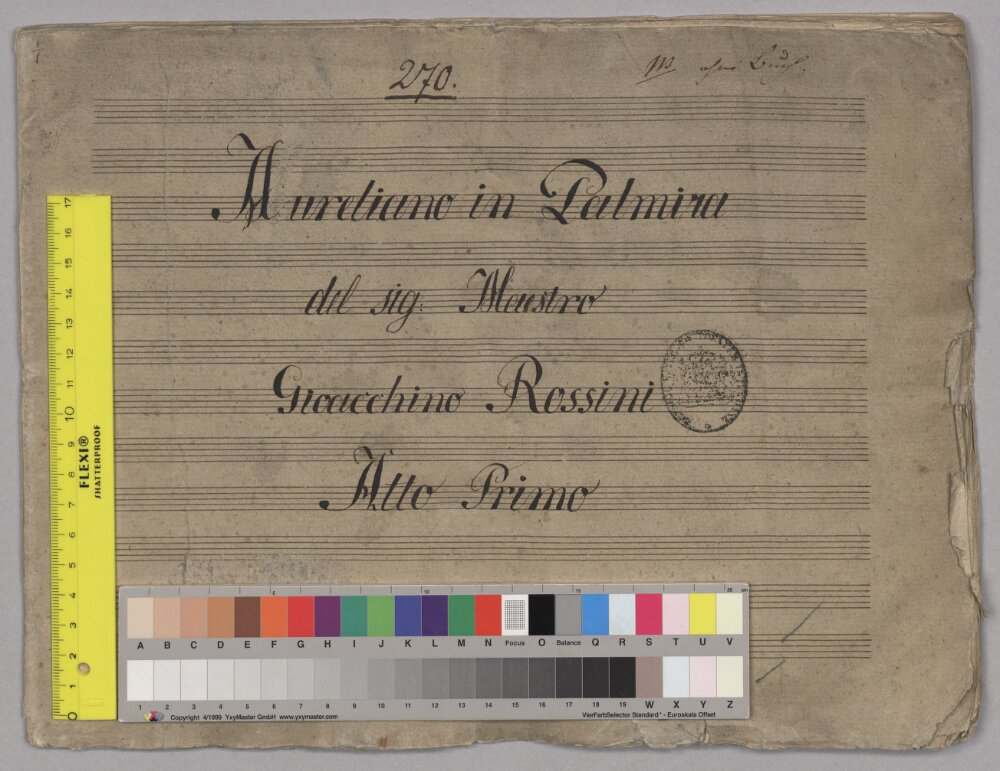 270.
Aureliano in Palmira
del sig: Maestro
Gioacchino Rossini
Atto Primo
17
16
15
14
13
12
11
10
9
8
7
6
5
4
3
2
1
0
FLEXI®
SHATTERPROOF
5 10 15 20
A B C D E F G H I J K L M N Focus O Balance Q R S T U V
1 2 3 4 5 6 7 8 9 10 11 12 13 14 15 16 17 18 19 W X Y Z
Copyright 4/1999 YxyMaster GmbH www.yxymaster.com VierFarbSelector Standard* - Euroskala Offset